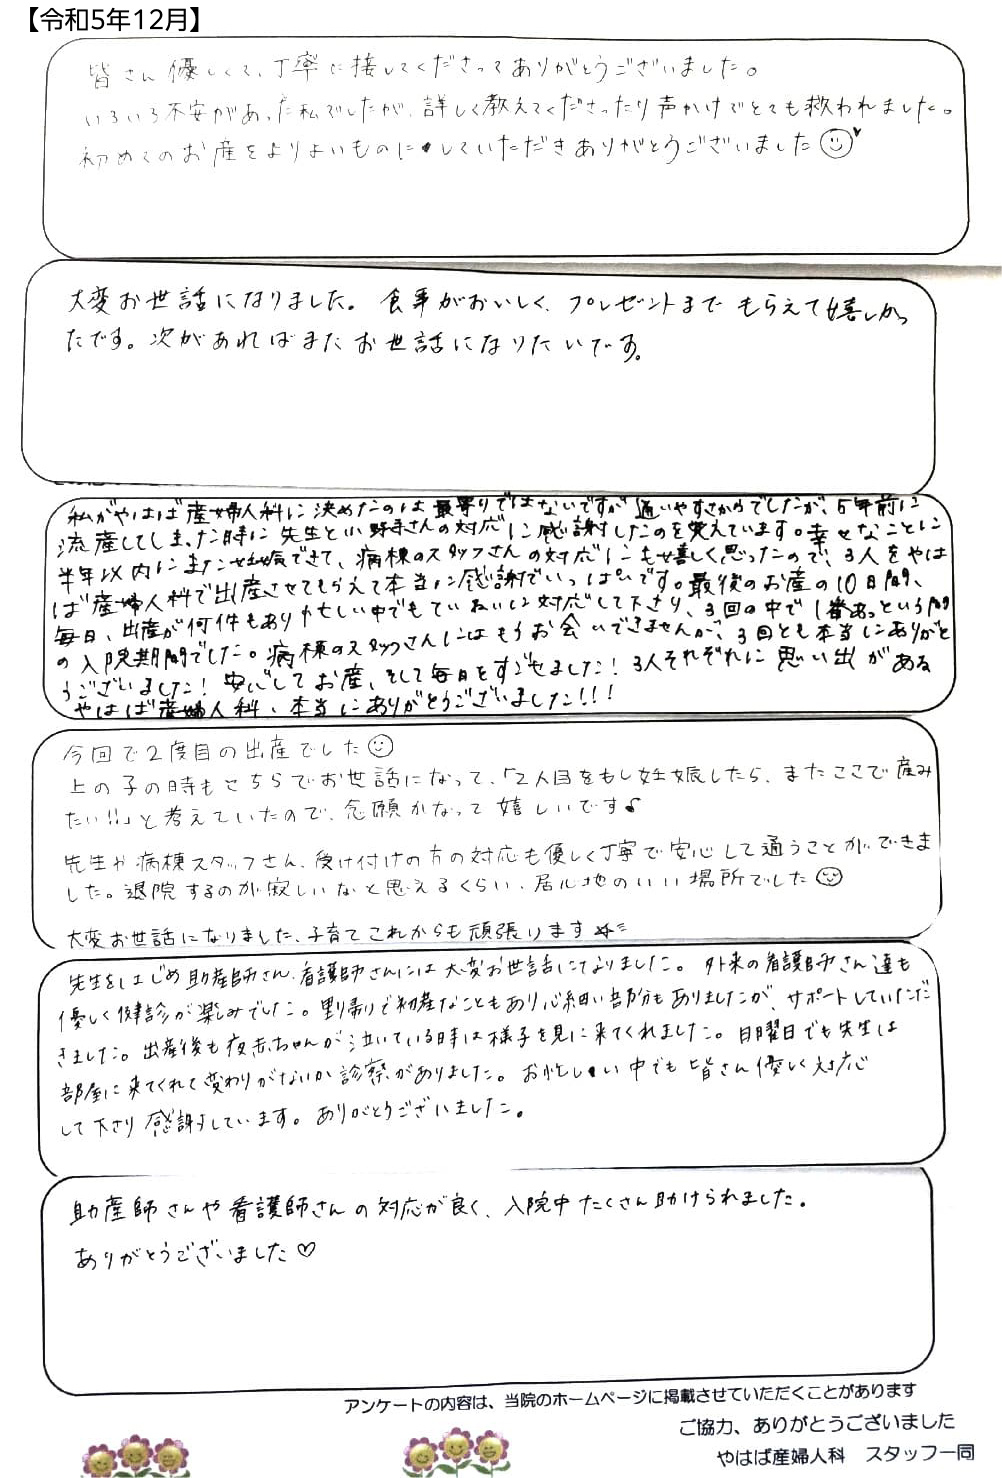 【令和5年12月】
皆さん優しくて、丁寧に接してくださってありがとうございました。
いろいろ不安があった私でしたが、詳しく教えてくださったり声かけでとても救われました。
初めてのお産をよりよいものにしていただきありがとうございました
大変お世話になりました。食事がおいしく、プレゼントまでもらえて嬉しかっ
たです。次があればまたお世話になりたいです。
私がやはば産婦人科に決めたのは最寄りではないですが通いやすさからでしたが、5年前に
流産してしまった時に先生と小野寺さんの対応に感謝したのを覚えています。幸せなことに
半年以内にまた妊娠できて、病棟のスタッフさんの対応にも嬉しく思ったので、3人をやは
ば産婦人科で出産させてもらえて本当に感謝でいっぱいです。最後のお産の10日間、
毎日、出産が何件もあり忙しい中でもていねいに対応して下さり、3回の中で1番あっという間
の入院期間でした。病棟のスタッフさんにはもうお会いできませんが、3回とも本当にありがと
うございました!安心してお産、そして毎日をすごせました!3人それぞれに思い出がある
やはば産婦人科、本当にありがとうございました!!!
今回で2度目の出産でした
上の子の時もこちらでお世話になって、「2人目をもし妊娠したら、またここで産み
たい!!」と考えていたので、念願かなって嬉しいです♪
先生や病棟スタッフさん、受け付けの方の対応も優しく丁寧で安心して通うことができま
した。退院するのが寂しいなと思えるくらい、居心地のいい場所でした
大変お世話になりました、子育てこれからも頑張ります
先生をはじめ助産師さん、看護師さんには大変お世話になりました。外来の看護師さん達も
優しく健診が楽しみでした。里帰りで初産なこともあり心細い部分もありましたが、サポートしていただ
きました。出産後も夜赤ちゃんが泣いている時は様子を見に来てくれました。日曜日でも先生は
部屋に来てくれて変わりがないか診察がありました。お忙しい中でも皆さん優しく対応
して下さり感謝しています。ありがとうございました。
助産師さんや看護師さんの対応が良く、入院中たくさん助けられました。
ありがとうございました♡
アンケートの内容は、当院のホームページに掲載させていただくことがあります
ご協力、ありがとうございました
やはば産婦人科 スタッフ一同